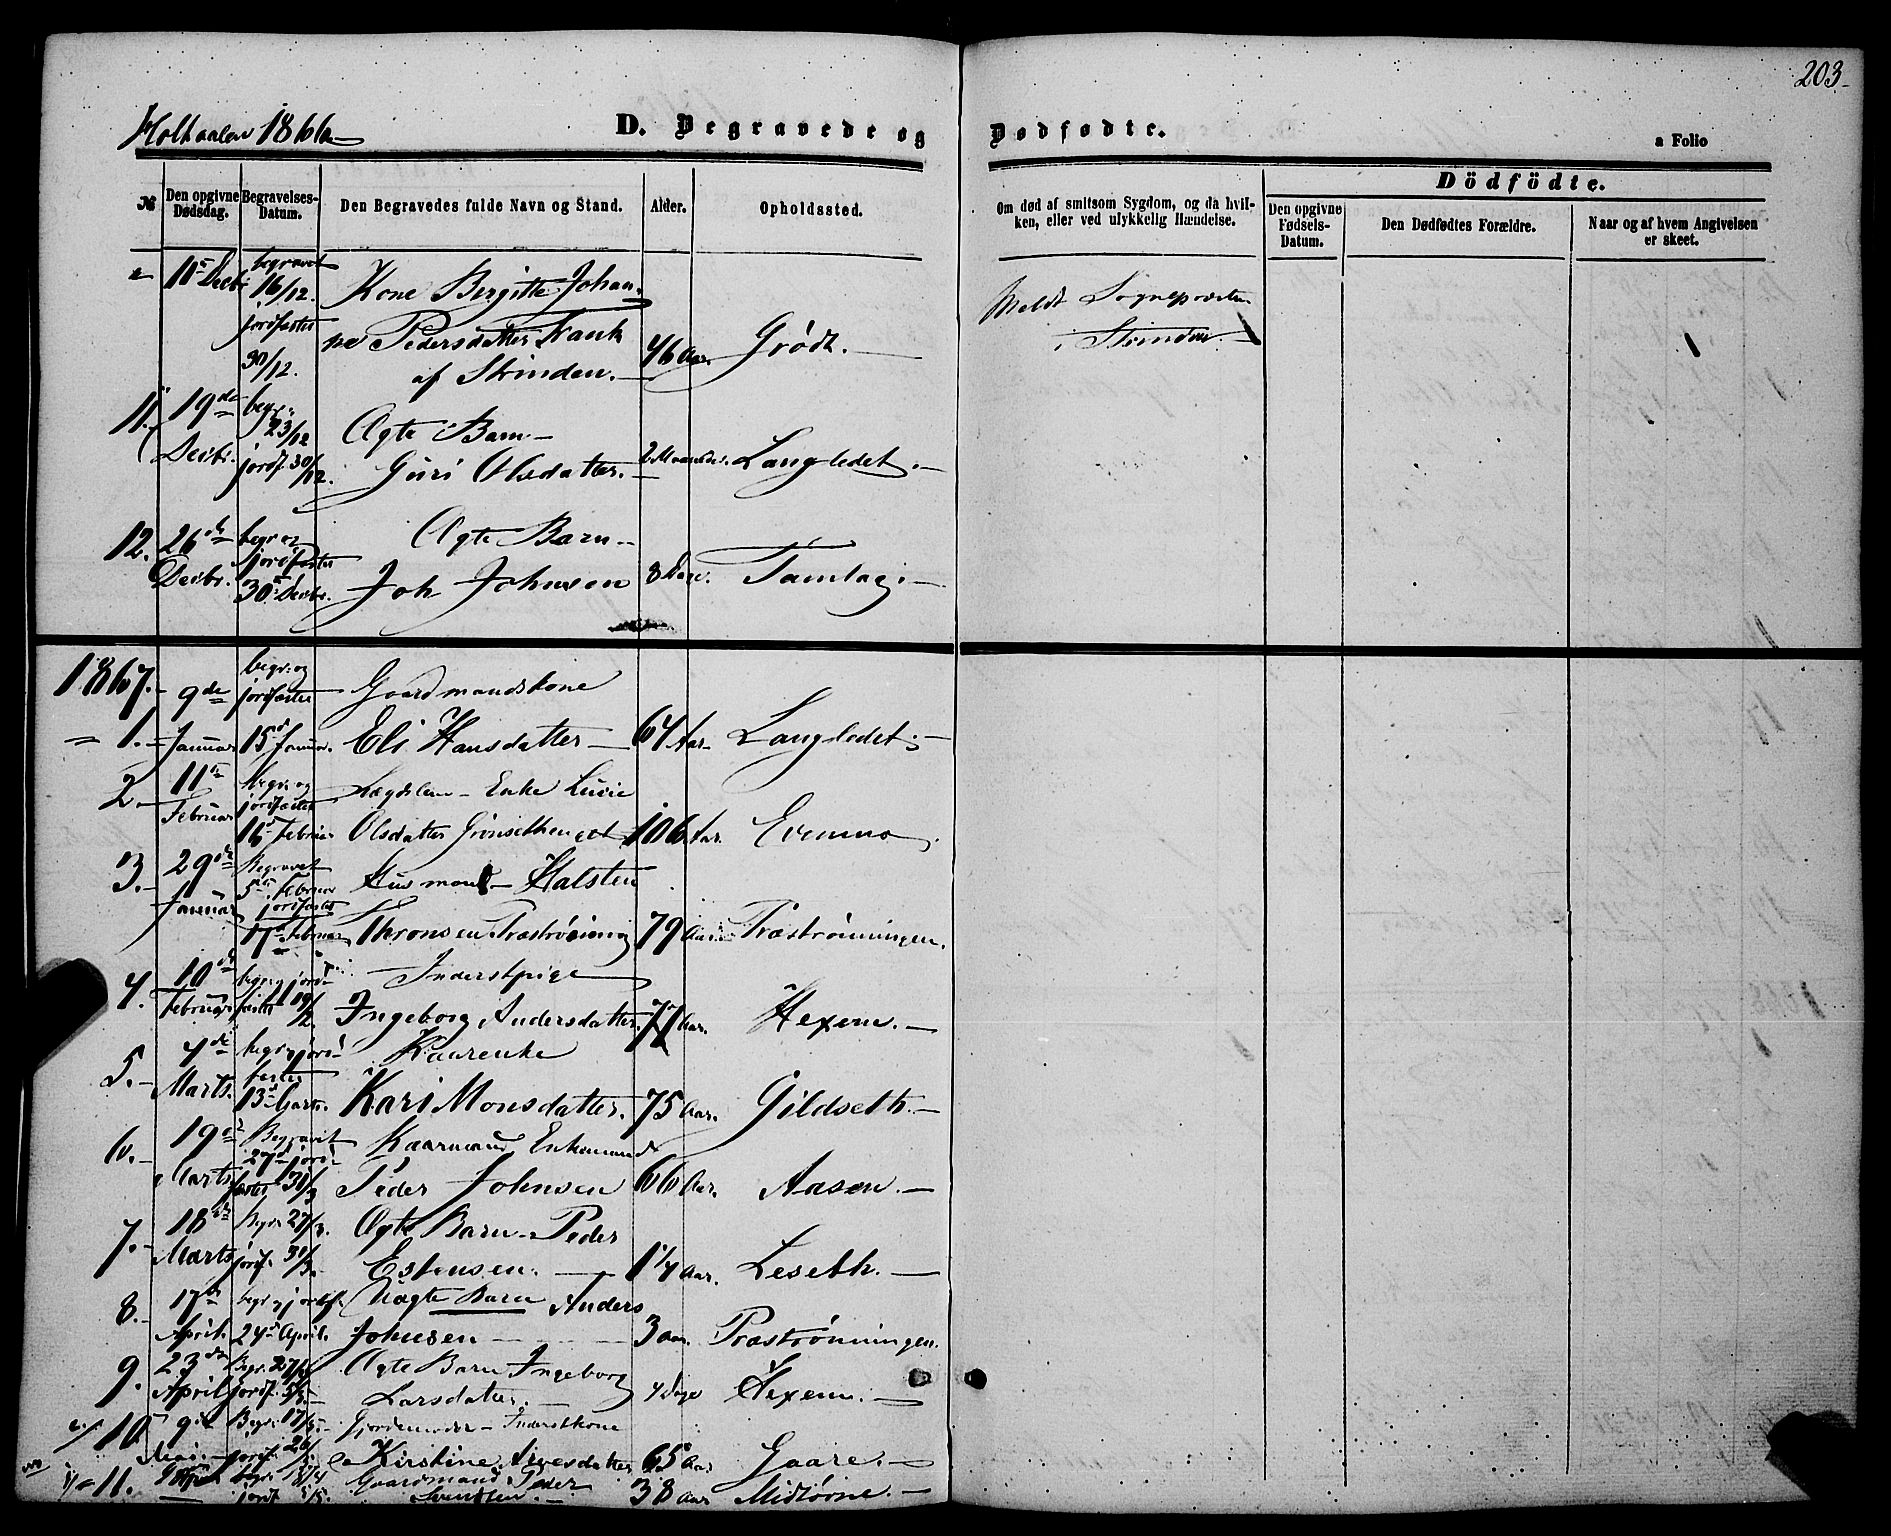 203
Holtaalen 1866
D. Begravede og Dødfødte.
a Folio
№
Den opgivne Dødsdag.
Begravelses-Datum.
Den Begravedes fulde Navn og Stand.
Alder.
Opholdssted.
Om død af smitsom Sygdom, og da hvil-
ken, eller ved ulykkelig Hændelse.
Dödfödte.
Den opgivne Fødsels-Datum.
Den Dødfødtes Forældre.
Naar og af hvem Angivelsen er skeet.
begravet
Kone Birgitte Johan-
16/12.
jordfæstet
ne Pedersdatter
46 Aar.
Grødt.
30/12.
af Strinden.
Meldt Sognepræsten
i Strinden
11. 19de begr. 23/12
Ægte Barn
Decbr. jordf. 30/12.
Guri Olsdatter.
2 Maaneder.
Langledet.
12. 26de begr. og
Ægte Barn
Decbr. jordfæstet
30 Decbr.
Joh Johnsen
8 Dage.
Tamlag.
1867.
9de begr. og
jordfæstet
Gaardmandskone
1. Januar 15 Januar.
Eli Hansdatter
64 Aar
Langledet.
2. 11te begr. og
jordfæstet
Lægdslem Enke
Februar
16 Februar
Olsdatter Grønsethen
106 Aar.
Evenmo.
3. 29de Begravet
5te Februar
Husmand Halsten
Januar jordfæstet
17 Februar
Thronsen Præstrønning
79 Aar.
Præstrønningen.
4. 10de
Inderstpige
Februar
19/2
Ingeborg Andersdatter.
77 Aar.
Hexem.
5. 4de begr. og jord-
Kaarenke
fæstet
Marts. 13 Marts.
Kari Monsdatter.
75 Aar.
Gildseth.
6. 19de Begravet
Kaarmand Enkemand
27 jord-
Marts fæstet 30/3
Peder Johnsen
66 Aar.
Aasen.
7. 18de Begr. 27/3.
Ægte Barn Peder
Marts jordf. 30/3.
Estensen.
1 1/4 Aar.
Leseth.
8. 17de begr. og jordf.
Uægte Barn Anders
April. 24 April.
Johnsen
3 Aar.
Præstrønningen.
9. 23de Begr. 27/4
Ægte Barn Ingeborg
April jordf. 5/5.
Larsdatter.
4 Dage
Hexem.
10 9de Begr. 17/5.
Gjordemoder Inderstkone
Mai jordf. 26/5.
Kirstine Siversdatter
65 Aar
Gaare.
11. begr. 18/4
Gaardmand Peder
jordf. 5/5.
Svendsen.
38 Aar
Midtørne.